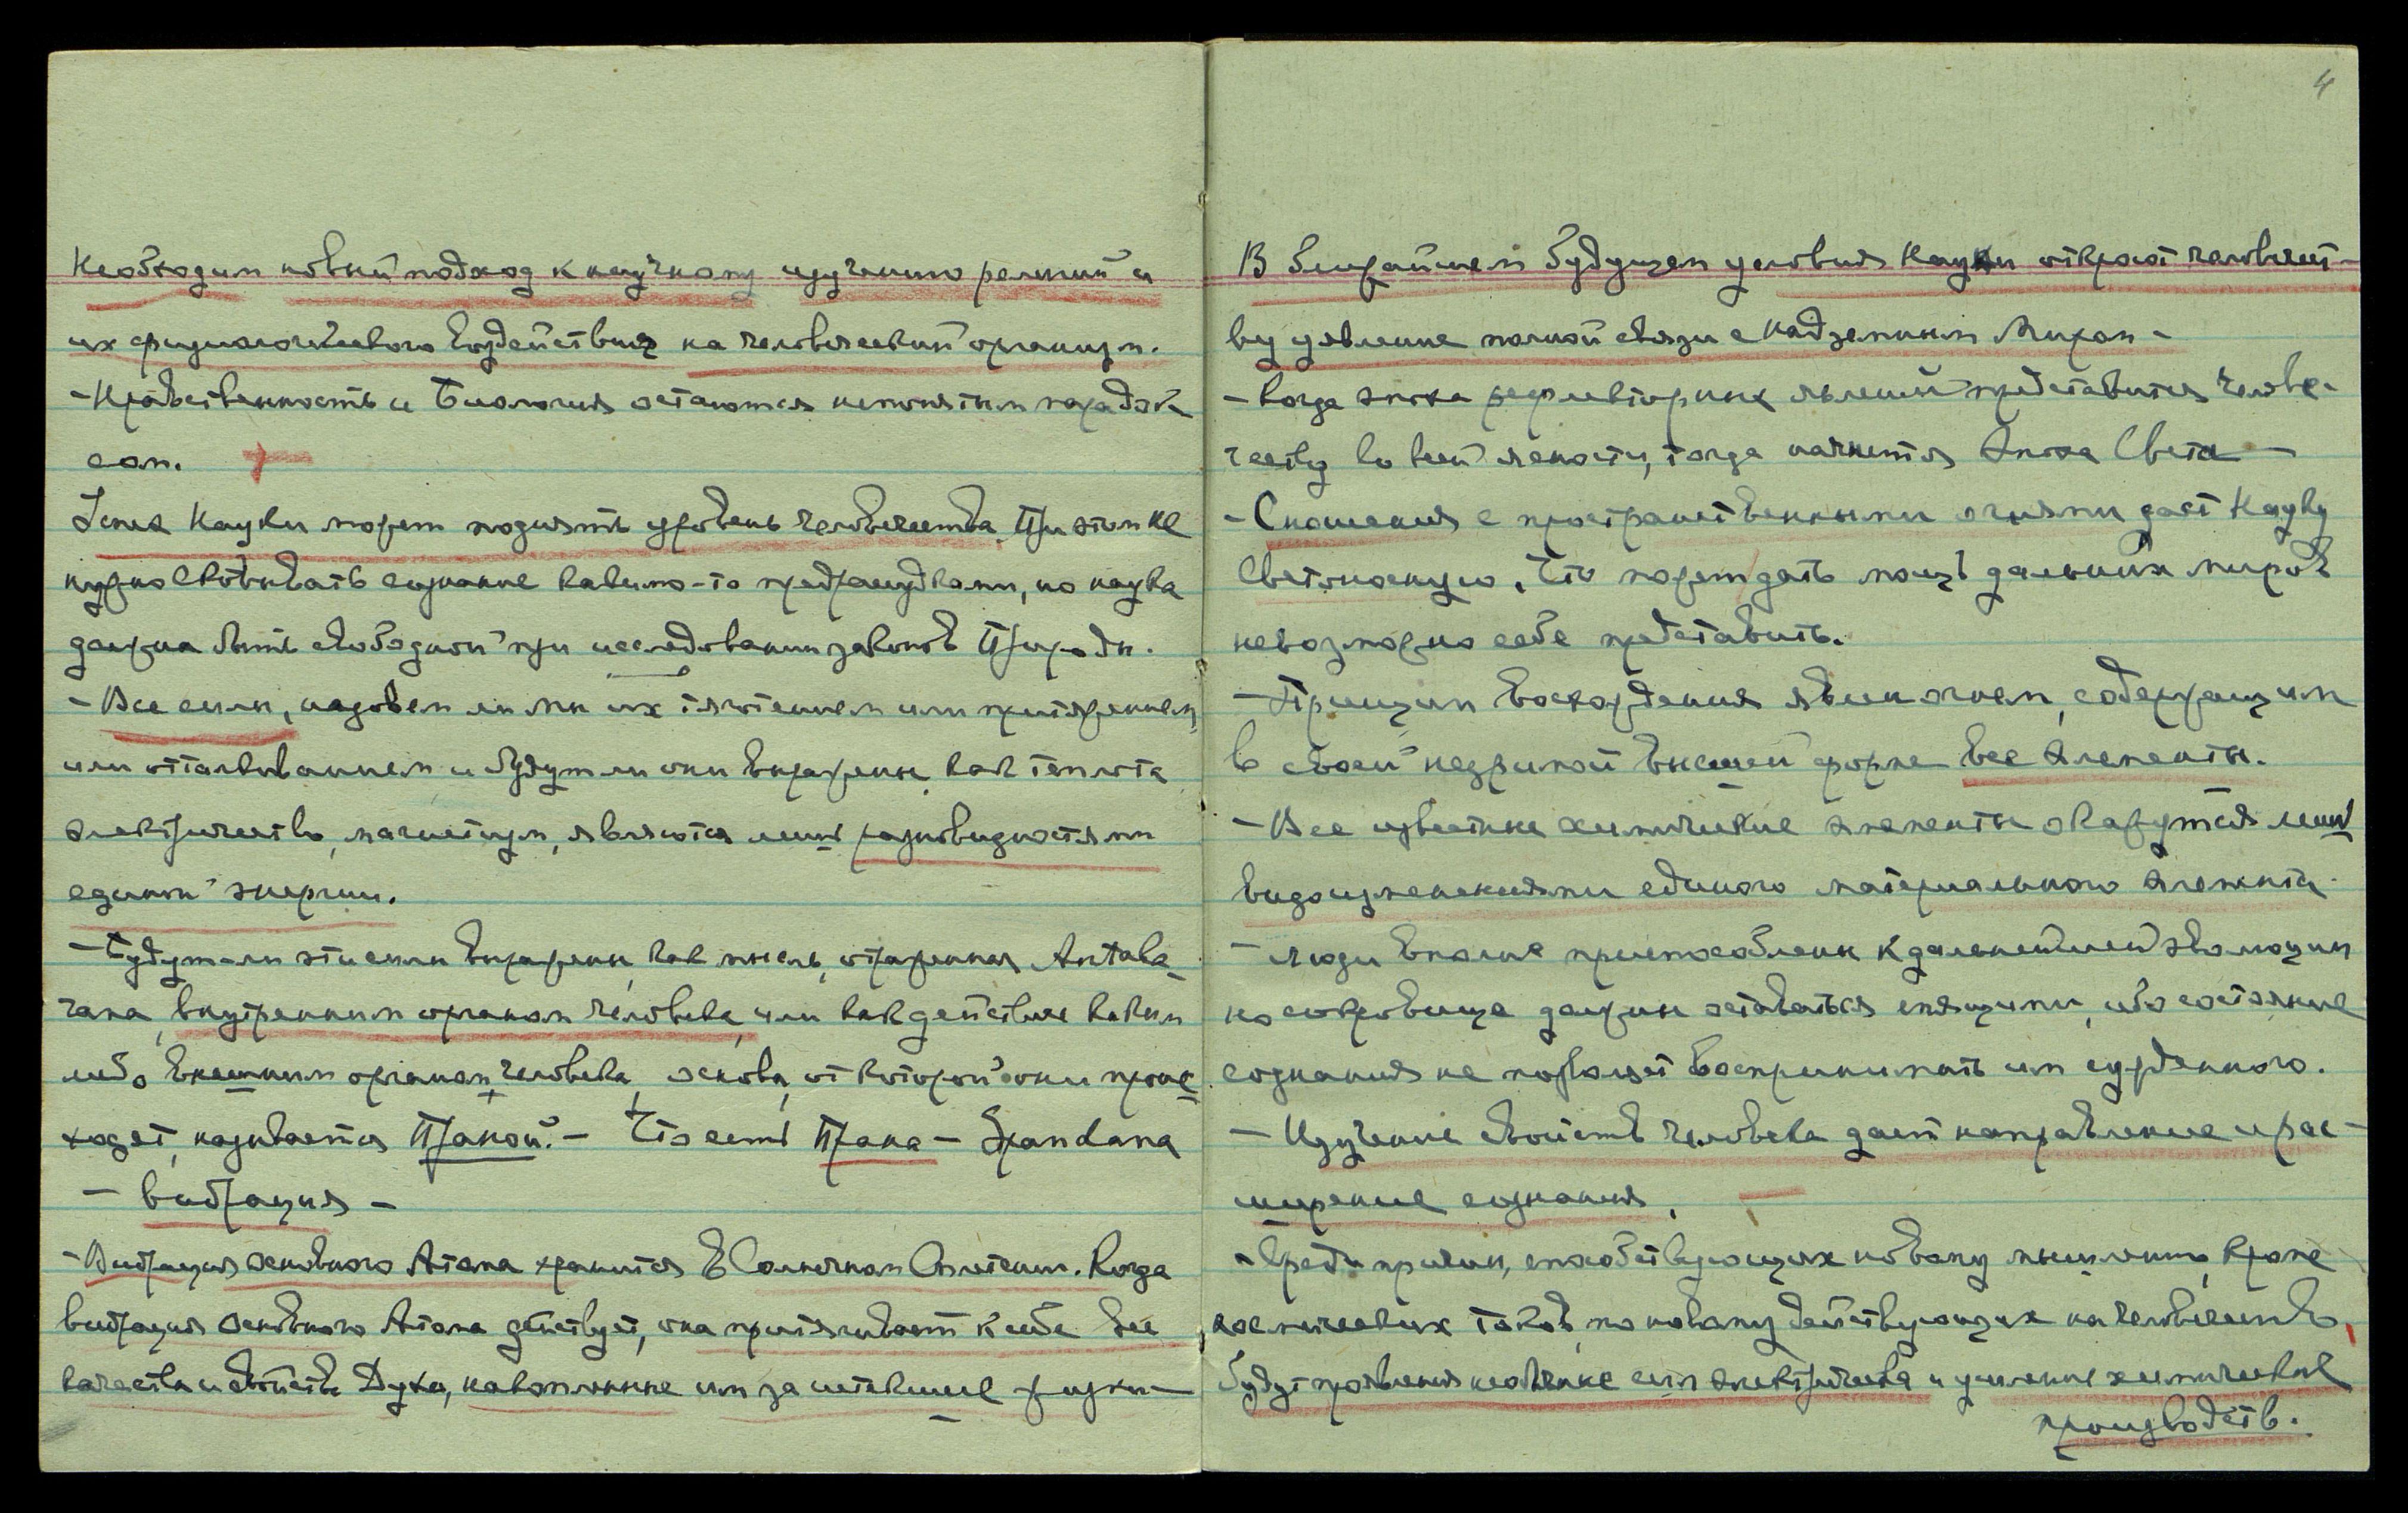 Необходим новый подход к научному изучению религий и
их физиологического воздействия на человеческий организм.
- Нравственность и Биология остаются непонятным парадок
сом.
Гений Науки может поднять уровень человечества. При этом не
нужно сковывать сознание какими-то предрассудками, но наука
должна быть свободной при исследовании законов Природы.
- Все силы, назовем ли мы их тяготением или притяжением,
или отталкиванием и будут ли они выражены, как теплота
электричество, магнетизм, являются лишь разновидностями
единой энергии.
- Будут ли эти силы выражены, как мысль, отраженная Antahka
, внутренним органом человека, или как действие каким
либо внешним органом человека, основа, от которой они проис
ходят, называется Праной. - Что есть Прана - Spandana
- вибрация -
- Вибрация основного Атома хранится в Солнечном Сплетении. Когда
вибрация основного Атома действует, она притягивает к себе все
качества и свойства Духа, накопленные им за истекшие жизни
4
В ближайшем будущем условия Науки откроют человечест-
ву уявление полной связи с Надземным Миром -
- Когда эпоха рефлекторных явлений представится челове-
честву во всей ясности, тогда начнется Эпоха Света -
- Сношения с пространственными огнями даст Науку
Светоносную. Что может дать мощь дальних миров
невозможно себе представить.
- Принцип восхождения явлен огнем, содержащим
в своей незримой высшей форме все элементы.
- Все известные химические элементы окажутся лишь
видоизменениями единого материального элемента
- Люди вполне приспособлены к дальнейшей эволюции
но сокровища должны оставаться спящими, ибо состояние
сознания не позволяет воспринимать им сужденного.
- Изучение свойств человека дает направление и рас-
ширение сознания.
- Среди причин, способствующих новому мышлению, кроме
космических токов, по новому действующих на человечество,
будут проявления несомненные сил электричества и усиление химических
производств.